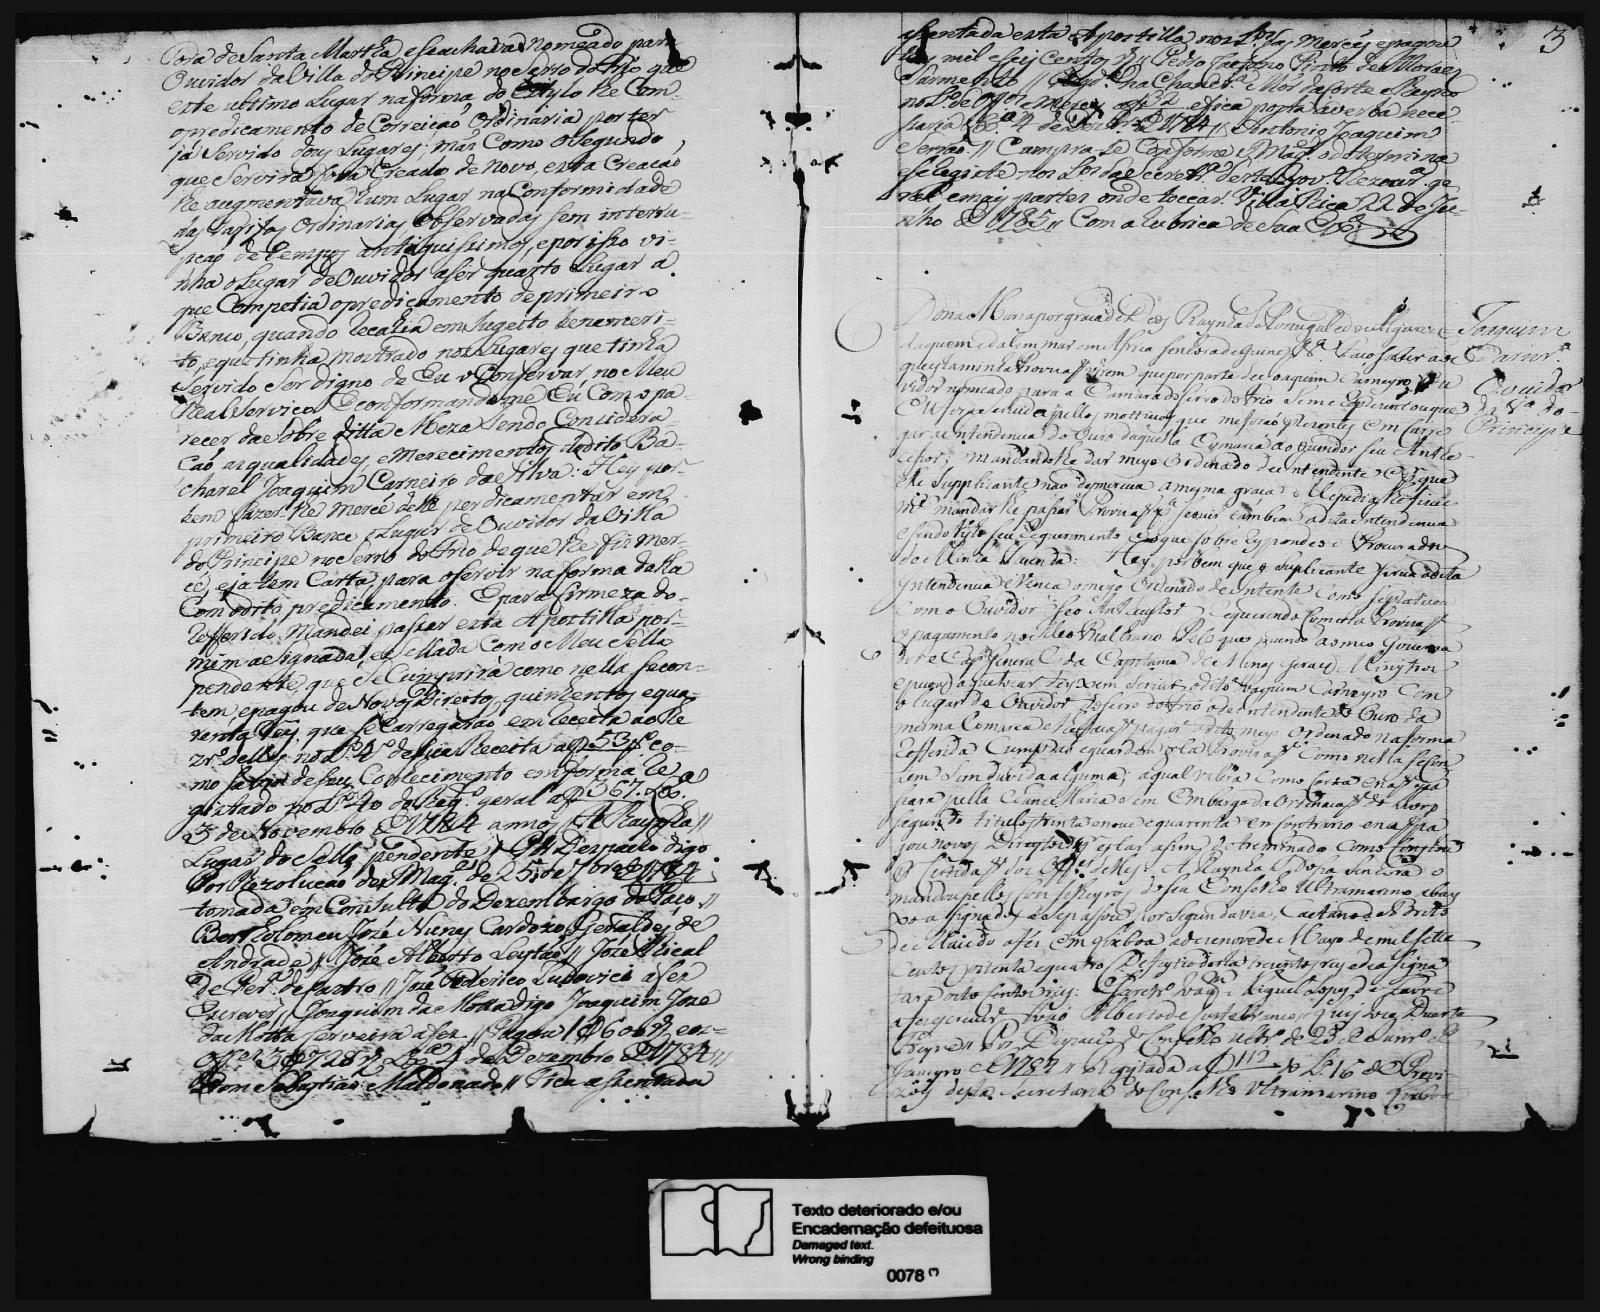 Cora de Santa Martha e se achava Nomeado para
Ouvidor da Villa do Principe no Serro do Frio que
este ultimo Lugar na forma do Estylo he Com
o predicamento de Correição Ordinaria por ter
já Servido dous Lugares; mas Como o Segundo
que Servira fora Creado de Novo, esta Creação
he augmentava hum Lugar na Conformidade
das Ordinarias Observadas sem interru-
pção de tempos antiquissimos, e por isso vi-
nha o Lugar de Ouvidor a ser quarto Lugar a
que Competia o predicamento de primeiro
Banco, quando recahia em Sugeito benemeri-
to, e que tinha mostrado nos Lugares que tinha
Servido Ser digno de Eu o Conservar no Meu
Real Serviço E conformandome Eu Com o pa-
recer da Sobre ditta Meza Sendo Concidera-
ção as qualidades, e Merecimentos do dito Ba-
charel Joaquim Carneiro da Silva: Hey por
bem fazer-lhe Mercê de lhe perdicamentar em
primeiro Banco o Lugar de Ouvidor da Villa
do Principe no Serro do Frio de que lhe fiz Mer-
cê, e já tem Carta, para o servir na forma della
Com o dito predicamento. E para firmeza do
Refferido Mandei passar esta Apostilla por
mim asignada, e Sellada Com o Meu Sello
pendente, que Se Cumprirá como nella se con-
tem, e pagou de Novos Direitos quinhentos e qua-
renta reis, que se Carregarão em Receita ao The
zr.º delles no L.º 4º de sua Receita a f 53 v co-
mo se vio de seu Conhecimento em forma Re
gistado no L.º 40 do Reg.º geral a f 367. Lx.ª
3 de Novembro de 1784 annos // A Raynha //
Lugar do Sello pendente // P.r Despacho digo
Por Rezolução de S. Mag.e de 25 de 7bro de 1784
tomada em Consulta do Dezembargo do Paço //
Bertholomeu Jozé Nunes Cardozo Geraldes de
Andrade // Jozé Alberto Leytão // Jozé Rical
de Per.ª de Castro // Jozé Federico Ludovici a fez
Escrever // Joaquim da Motta digo Joaquim Joze
da Motta Serveira a fez // Pagou 1$600 r.s e aos
Off.es 3$728 r.s Lx.ª 2 de Dezembro de 1784 //
Dom Sebastião Maldonado // Fica asentada
asentada esta Apostilla nos L.os das Mercês e pagou
mil e seis centos r.s // Pedro Caetano Pinto de Moraes
Sarmento // Reg.da na Chanc.ª Mor da Corte e Reyno
no L.º de Off.os e Mercês a f 32 e fica posta a verba nece-
ssaria Lx.ª 4 de Dezbr.o de 1784 // Antonio Joaquim
Serrão // Cumpra-se Conforme S. Mag.e o determina
e se registe nos L.os da Secret.ª deste Gov.º Rezour.ª ge-
ral e mais partes onde toccar. Villa Rica 22 de Ju-
nho de 1785 // Com a Rubrica de Sua Ex.ª
3
Joaquim
Carnr.º
Ouvidor
da V.ª do
Principe
Dona Maria por graça de Deos Raynha de Portugal e dos Algarves
daquem e dalem mar em Africa Senhora de Guiné &.ª Faço saber aos
que esta minha Provisão virem que por parte de Joaquim Carneyro Ou
vidor nomeado para a Camara do Serro do Frio se me Reprezentou que
pellos mottivos que me forão prezentes em carre
gar a intendencia do Ouro daquella Comarca ao Ouvidor seu Ante
cesor, mandandolhe dar meyo Ordenado de intendente e por que
elle Supplicante não desmerecia a mesma graça
mandarlhe pasar Provizão p.ª servir tambem a dita intendencia
e sendo visto seu Requerimento e o que sobre elle Respondeo o Procurador
de Minha fazenda: Hey por bem que o Suplicante sirva a dita
intendencia e Vença o meyo Ordenado de intente como se praticou
com o Ouvidor seo Antecesor Requerendo Com esta Provizão
o pagamento no Meo Real Erario Pelo que mando ao meo Governa
dor e Cap.m General da Capitania de Minas Geraes Ministros
e pessoas a que tocar deyxem servir ao dito Joaquim Carneyro com
o lugar de Ouvidor do Serro do Frio o de intendente do Ouro da
mesma Comarca e lhe faça pagar o dito meyo Ordenado na forma
Refferida Cumprão e guardem esta Provizão Como nella se con-
tem sem duvida alguma; a qual valerá Como Carta e não passa
rá pella Chancellaria sem embargo da Ordenação do Livro
segundo titulos trinta e nove e quarenta em contrario e não pa
gou novos Direytos por estar asim determinado Como Constou
por Certidão dos Off.es delles. A Raynha Nossa Senhora o
mandou pellos Conselheyros do seu Conselho Ultramarino abay
xo asignados e se pasou por segunda via, Caetano de Brito
de Macedo a fez em Lisboa a dezenove de Mayo de mil sete
centos oitenta e quatro
a fes escrever João Alberto de Castelbranco // Luis Diogo Duarte
Por Despacho do Conselho Ultr.º de 23 de
Janeyro de 1784 // Registada a f 112 do L.º 16 de Provi-
zões desta Secretaria do Conselho Ultramarino Lisboa
Texto deteriorado e/ou
Encadernação defeituosa
Damaged text.
Wrong binding
0078 (*)